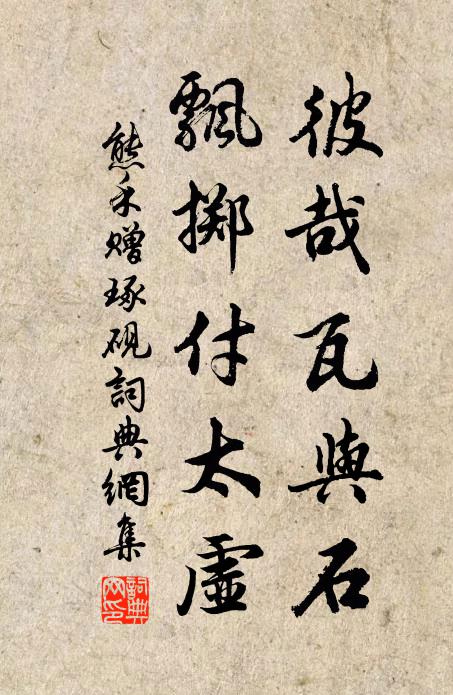 彼哉瓦與石
飄擲付太虛
熊禾贈琢硯詞典網集
詞典网印